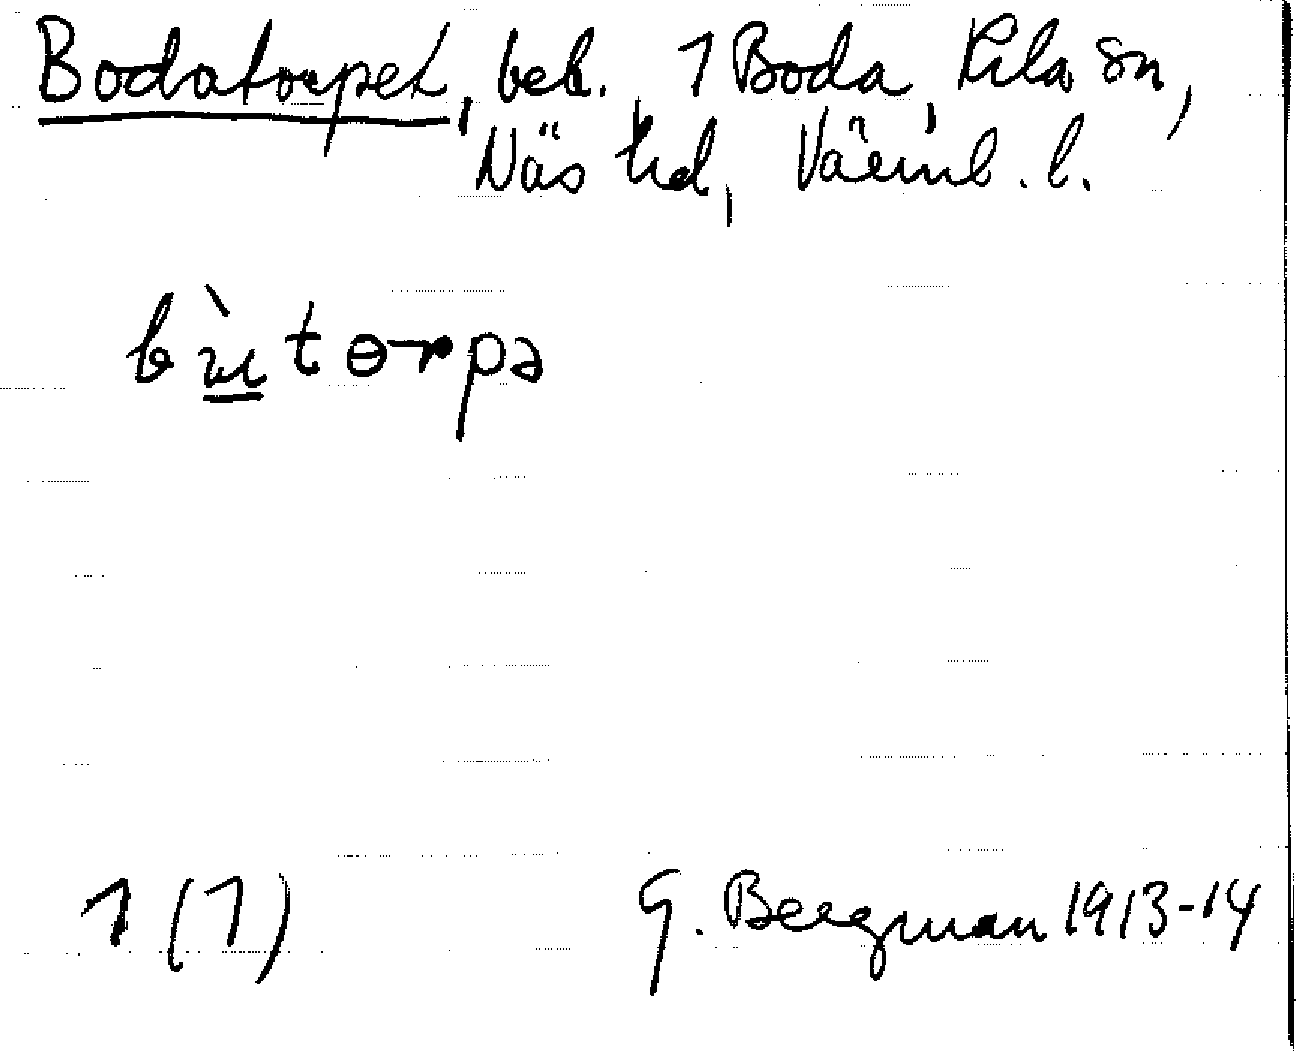 Bodatorpet, beb. 1 Boda, Kila sn,
Näs hd, Värml. l.
bùtɵrpə
1 (1) G. Bergman 1913-14